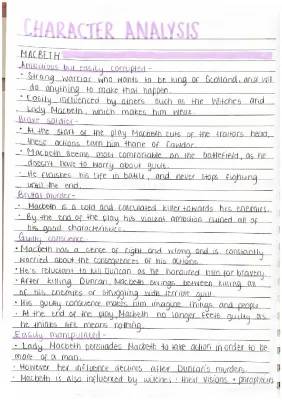 CHARACTER ANALYSIS
MACBETH
Ambitious but easily corrupted -
• Strong warrior who wants to be king of Scotland, and will
do anything to make that happen.
• Easily influenced by others such as the Witches and
Lady Macbeth, which makes him weak.
Brave soldier -
• At the start of the play Macbeth cuts of the traitors head,
these actions earn him thane of Cawdor.
• Macbeth seems most comfortable on the battlefield, as he
doesn't have to worry about guilt.
• He finishes his life in battle, and never stops fighting
until the end.
Brutal murder -
• Macbeth is a cold and calculated killer towards his enemies.
• By the end of the play his violent ambition ruined all of
his good characteristics.
Guilty conscience -
• Macbeth has a sense of right and wrong and is constantly
worried about the consequences of his actions.
• He's reluctant to kill Duncan as he honoured him for bravery.
• After killing Duncan, Macbeth swings between killing all
of his enemies or struggling with terrible guilt.
• His guilty conscience makes him imagine things and people.
• At the end of the play Macbeth no longer feels guilty as
he thinks life means nothing.
Easily manipulated -
• Lady Macbeth persuades Macbeth to take action in order to be
more of a man.
• However her influence declines after Duncan's murder.
• Macbeth is also influenced by witches' their visions + prophecies